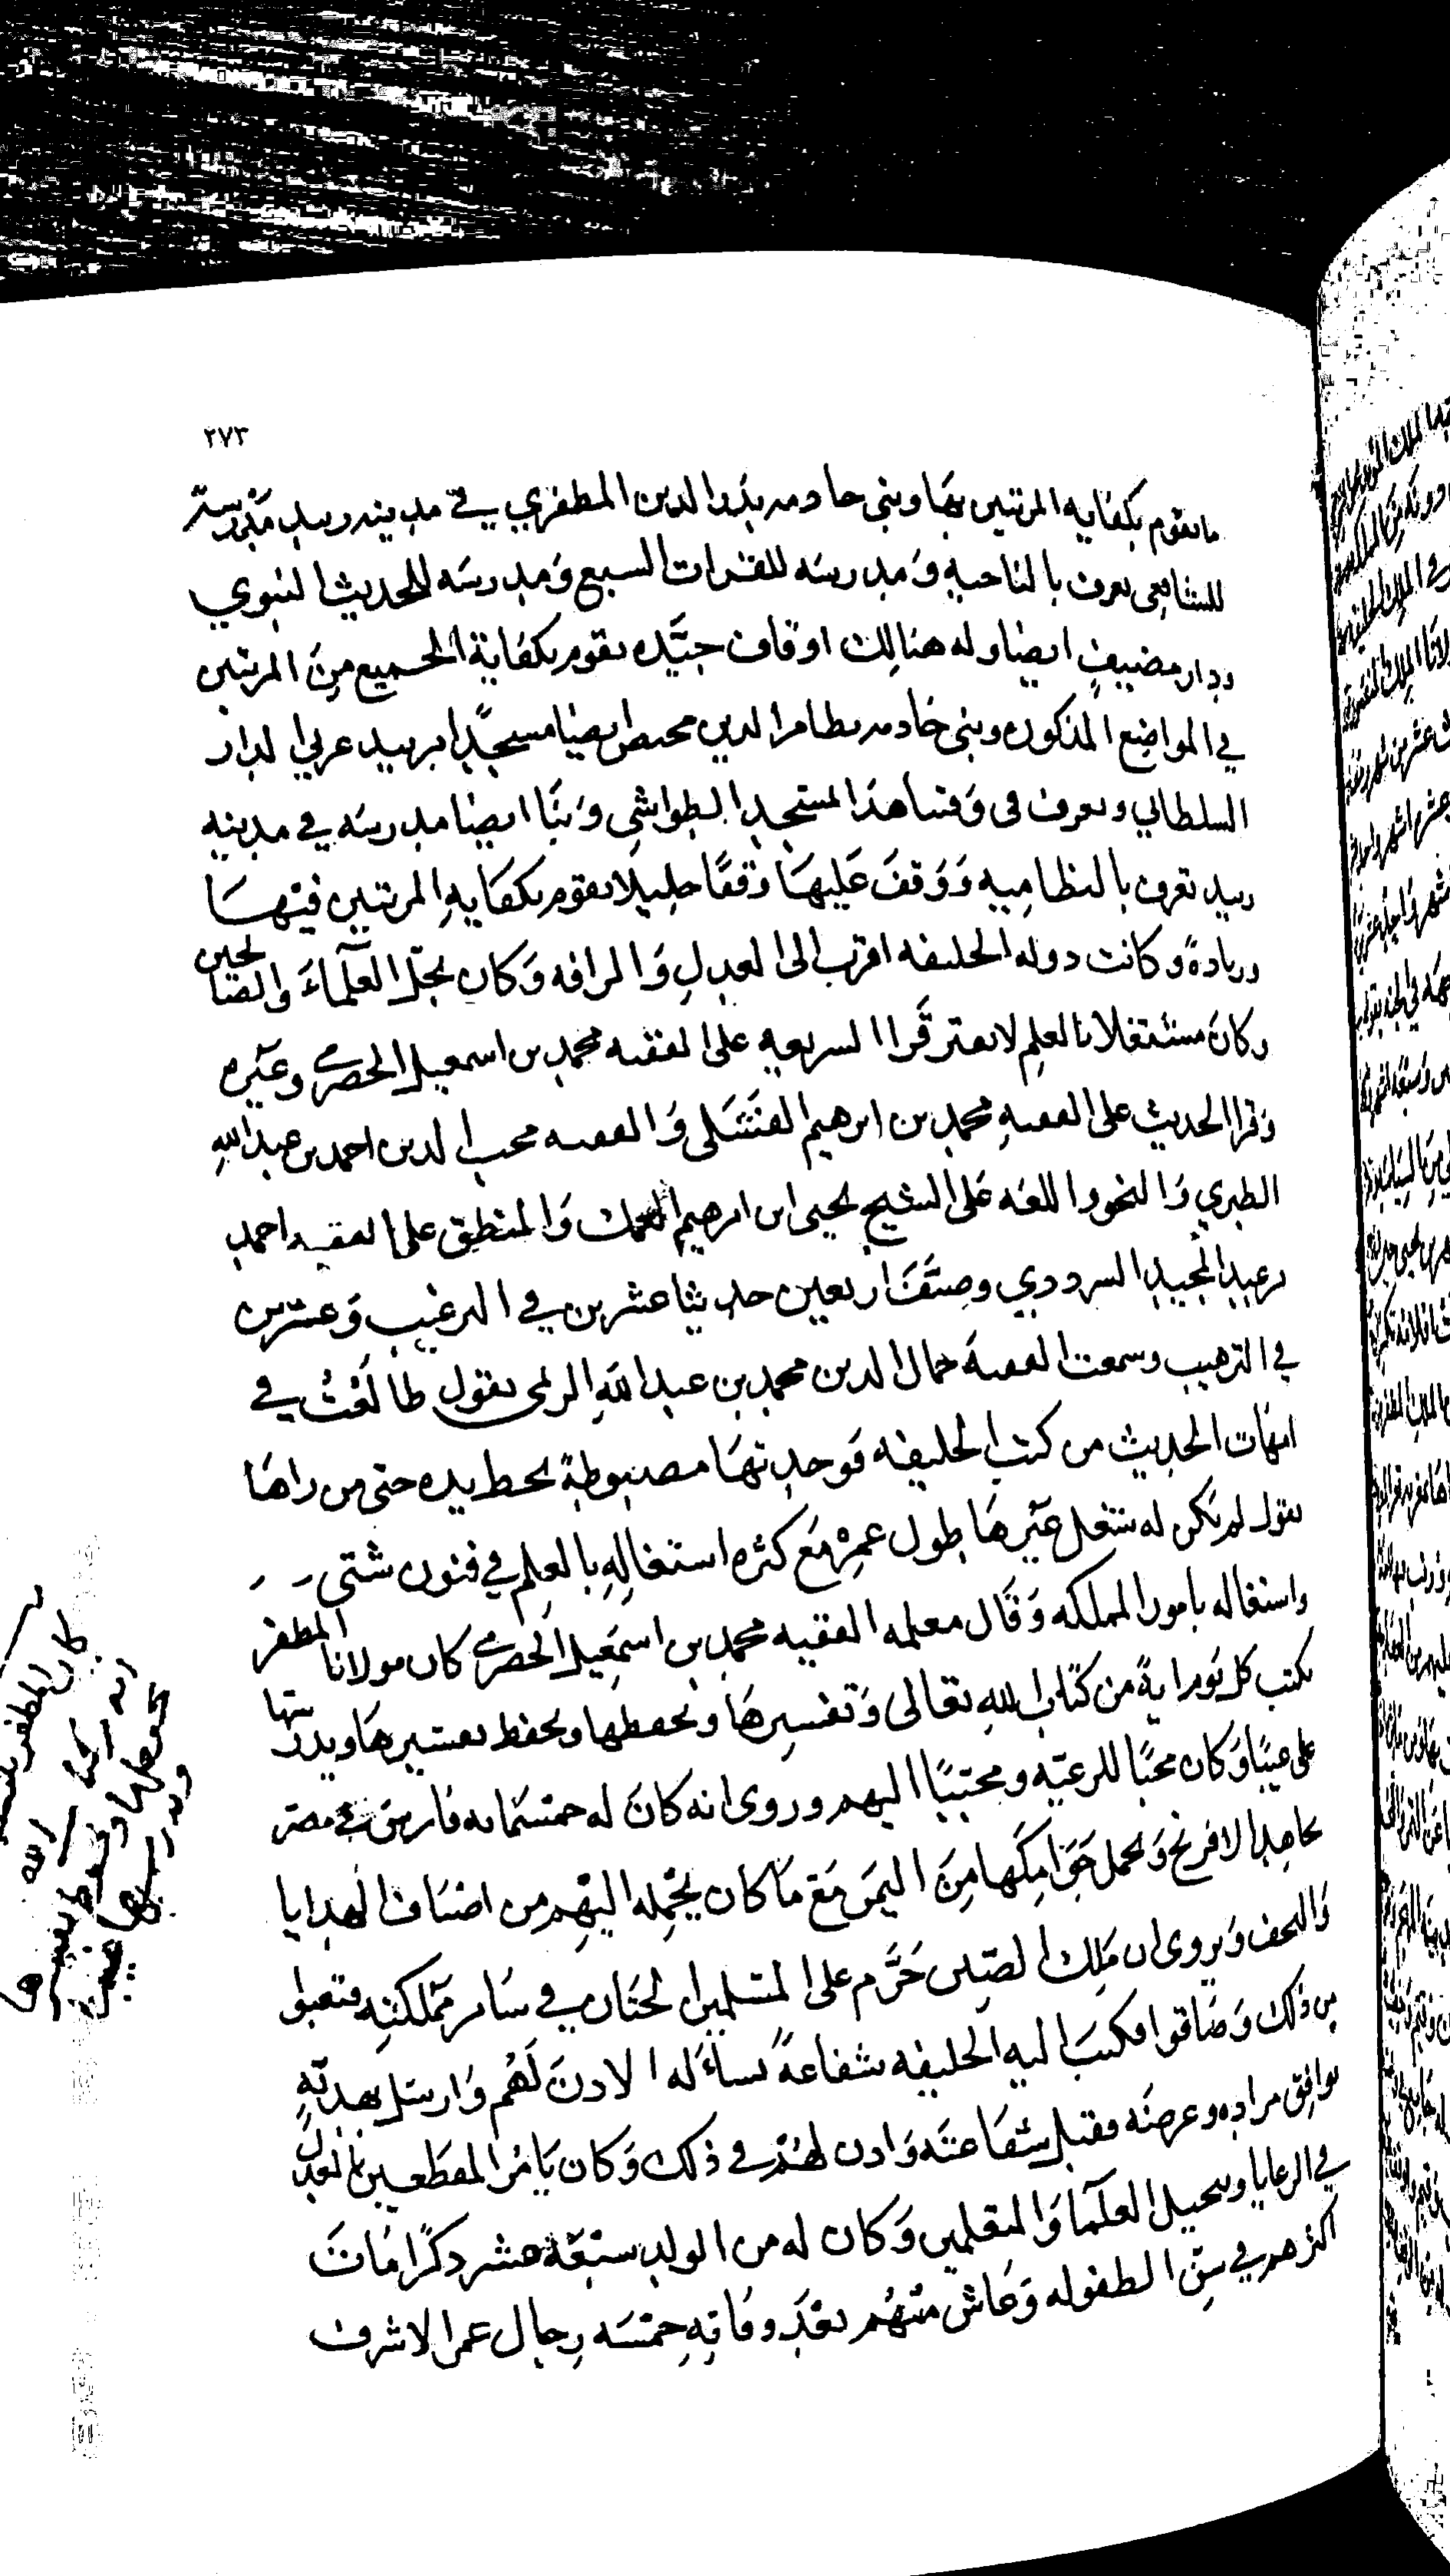 ٢٧٣
ما يقوم بكفايه المرتبين بها وبنى خادمه بدر الدين المظفري في مدينه زبيد مدرسة
للشافعي تعرف بالتاجيه ومدرسه للقراات السبع ومدرسه للحديث النبوي
ودار مضيف ايضا وله هنالك اوقاف جيده تقوم بكفاية الجميع من المرتبين
في المواضع المذكوره وبنى خادمه نظام الدين مختص ايضا مسجدا بزبيد غربي الدار
السلطاني ويعرف في وقتنا هذا المسجد الطواشي وبنا ايضا مدرسه في مدينه
زبيد تعرف بالنظاميه ووقف عليها وقفا جليلا يقوم بكفايه المرتبين فيها
وزيادة وكانت دوله الخليفه اقرب الى العدل والرافه وكان يجل العلماء والصالحين
وكان مشتغلا بالعلم لا يفتر قرا الشريعه على الفقيه محمد بن اسمعيل الحضرمي وغيره
وقرا الحديث على الفقيه محمد بن ابرهيم الفشلي والفقيه محب الدين احمد بن عبد الله
الطبري والنحو واللغه على الشيخ يحيى ابن ابرهيم العمك والمنطق على الفقيه احمد
بن عبد المجيد السرددي وصنف اربعين حديثا عشرين في الترغيب وعشرين
في الترهيب وسمعت الفقيه جمال الدين محمد بن عبد الله الريمي يقول طالعت في
امهات الحديث من كتب الخليفه فوجدتها مضبوطة بخط يده حتى من راها
يقول لم يكن له شغل غيرها طول عمره مع كثره اشتغاله بالعلم في فنون شتى
واشتغاله بامور المملكه وقال معلمه الفقيه محمد بن اسمعيل الحضرمي كان مولانا المظفر
يكتب كل يوم اية من كتاب الله تعالى وتفسيرها ويحفظها ويحفظ تفسيرها ويدرسها
على غيبا وكان محبا للرعيه ومحببا اليهم وروى انه كان له خمسمايه فارس في مصر
يجاهد الافرنج ويحمل جوامكها من اليمن مع ما كان يحمله اليهم من اصناف الهدايا
والتحف ويروى ان ملك الصين حرم على المسلمين الختان في ساير مملكته فتعبوا
من ذلك وضاقوا فكتب اليه الخليفه شفاعة يساله الاذن لهم وارسل بهدية
توافق مراده وغرضه فقبل شفاعته واذن لهم في ذلك وكان يامر المقطعين بالعدل
في الرعايا وتبجيل العلما والمتعلمين وكان له من الولد سبعة عشر ذكرا مات
اكثرهم في سن الطفوله وعاش منهم بعد وفاته خمسه رجال عمر الاشرف